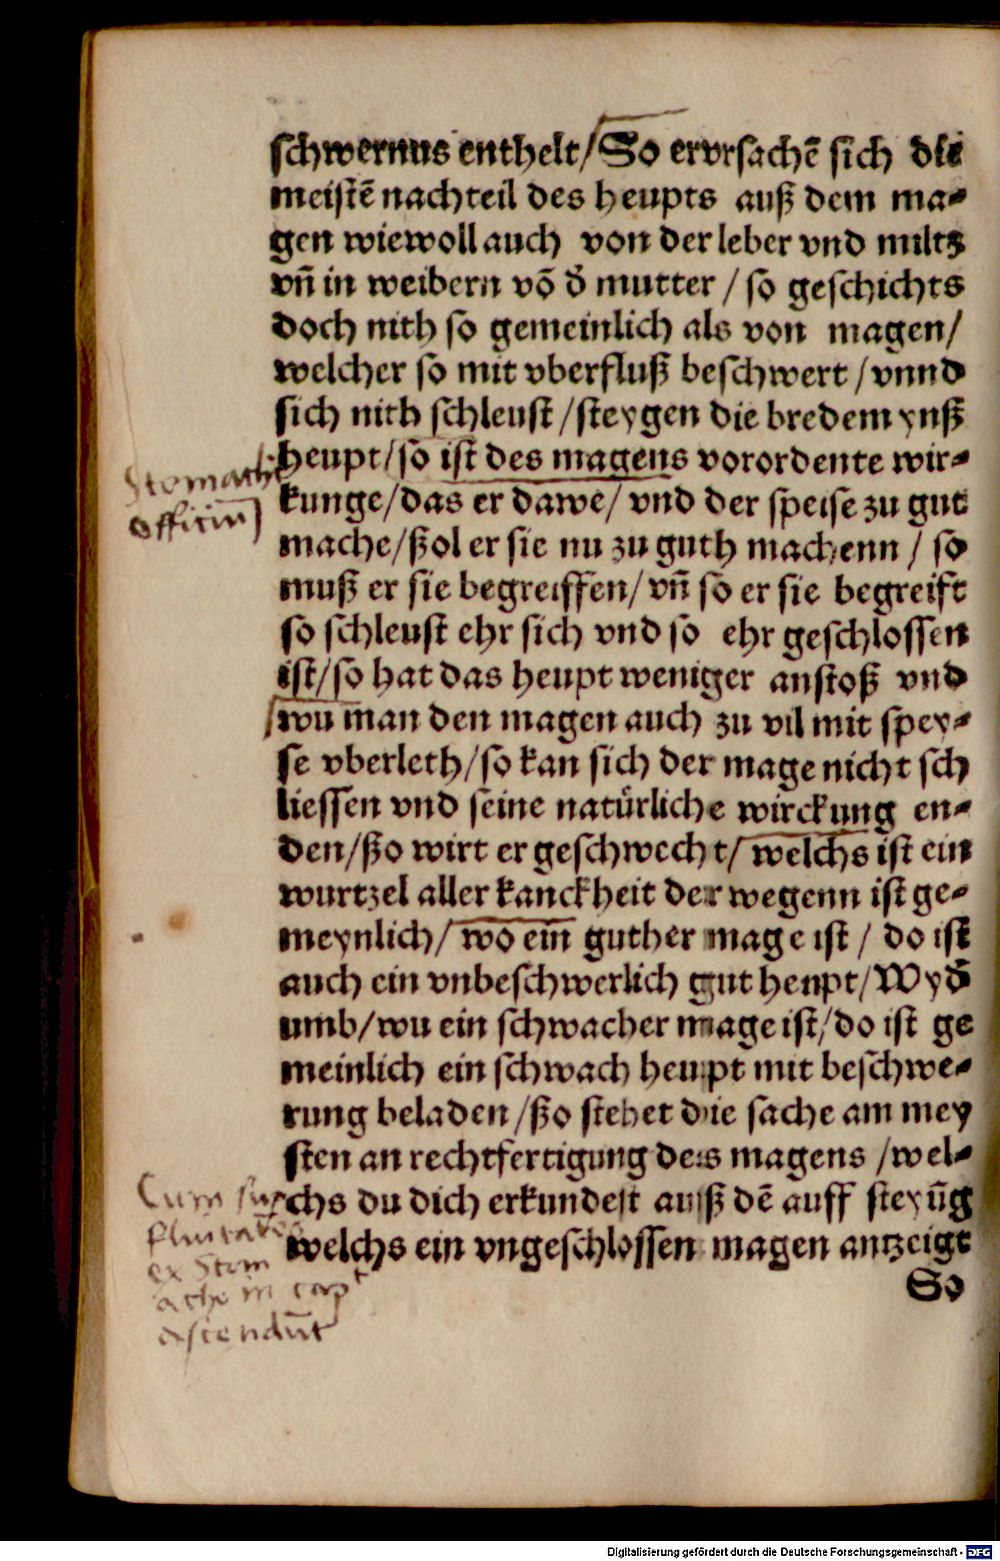 schwernus enthelt/So ervrsachē sich die
meistē nachteil des heupts auß dem ma⸗
gen wiewoll auch von der leber vnd miltz
vn̄ in weibern vō d̄ mutter / so geschichts
doch nith so gemeinlich als von magen/
welcher so mit vberfluß beschwert /vnnd
sich nith schleust /steygen die bredem ynß
heupt/so ist des magens vorordente wir⸗
Stomachi
kunge/das er dawe/ vnd der speise zu gut
officiu̅
mache/ßol er sie nu zu guth machenn / so
muß er sie begreiffen/ vn̄ so er sie begreift
so schleust ehr sich vnd so ehr geschlossen
ist/so hat das heupt weniger anstoß vnd
wu man den magen auch zu vil mit spey⸗
se vberleth/so kan sich der mage nicht sch
liessen vnd seine natürliche wirckung en⸗
den/ßo wirt er geschwecht/welchs ist ein
wurtzel aller kanckheit der wegenn ist ge⸗
meynlich/wo ein guther mage ist / do ist
auch ein vnbeschwerlich gut heupt/Wyd̄
umb/wu ein schwacher mage ist/do ist ge
meinlich ein schwach heupt mit beschwe⸗
rung beladen /ßo stehet die sache am mey
sten an rechtfertigung des magens /wel⸗
chs du dich erkundest auß dē auff steyūg
welchs ein vngeschlossen magen antzeigt
So
Cum sup
fluitates
ex Stom
acho in cap
ascendūt
Digitalisierung gefördert durch die Deutsche Forschungsgemeinschaft - DFG